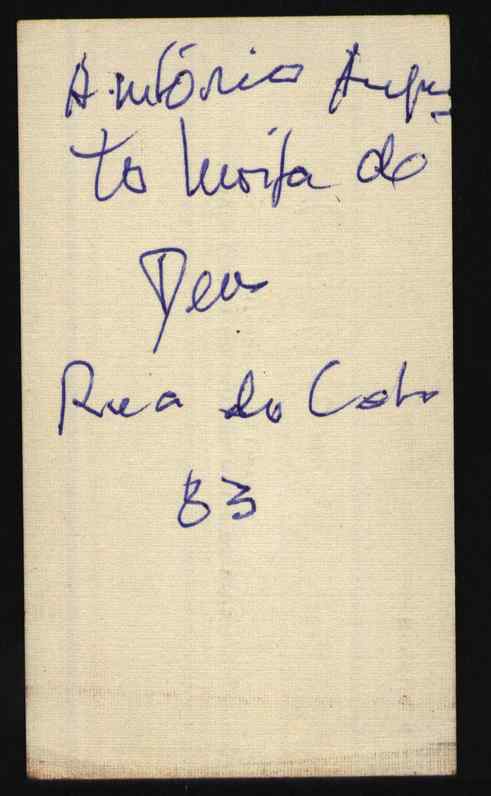 António Augus-
to Moita de
Deus
Rua do Cabo
83